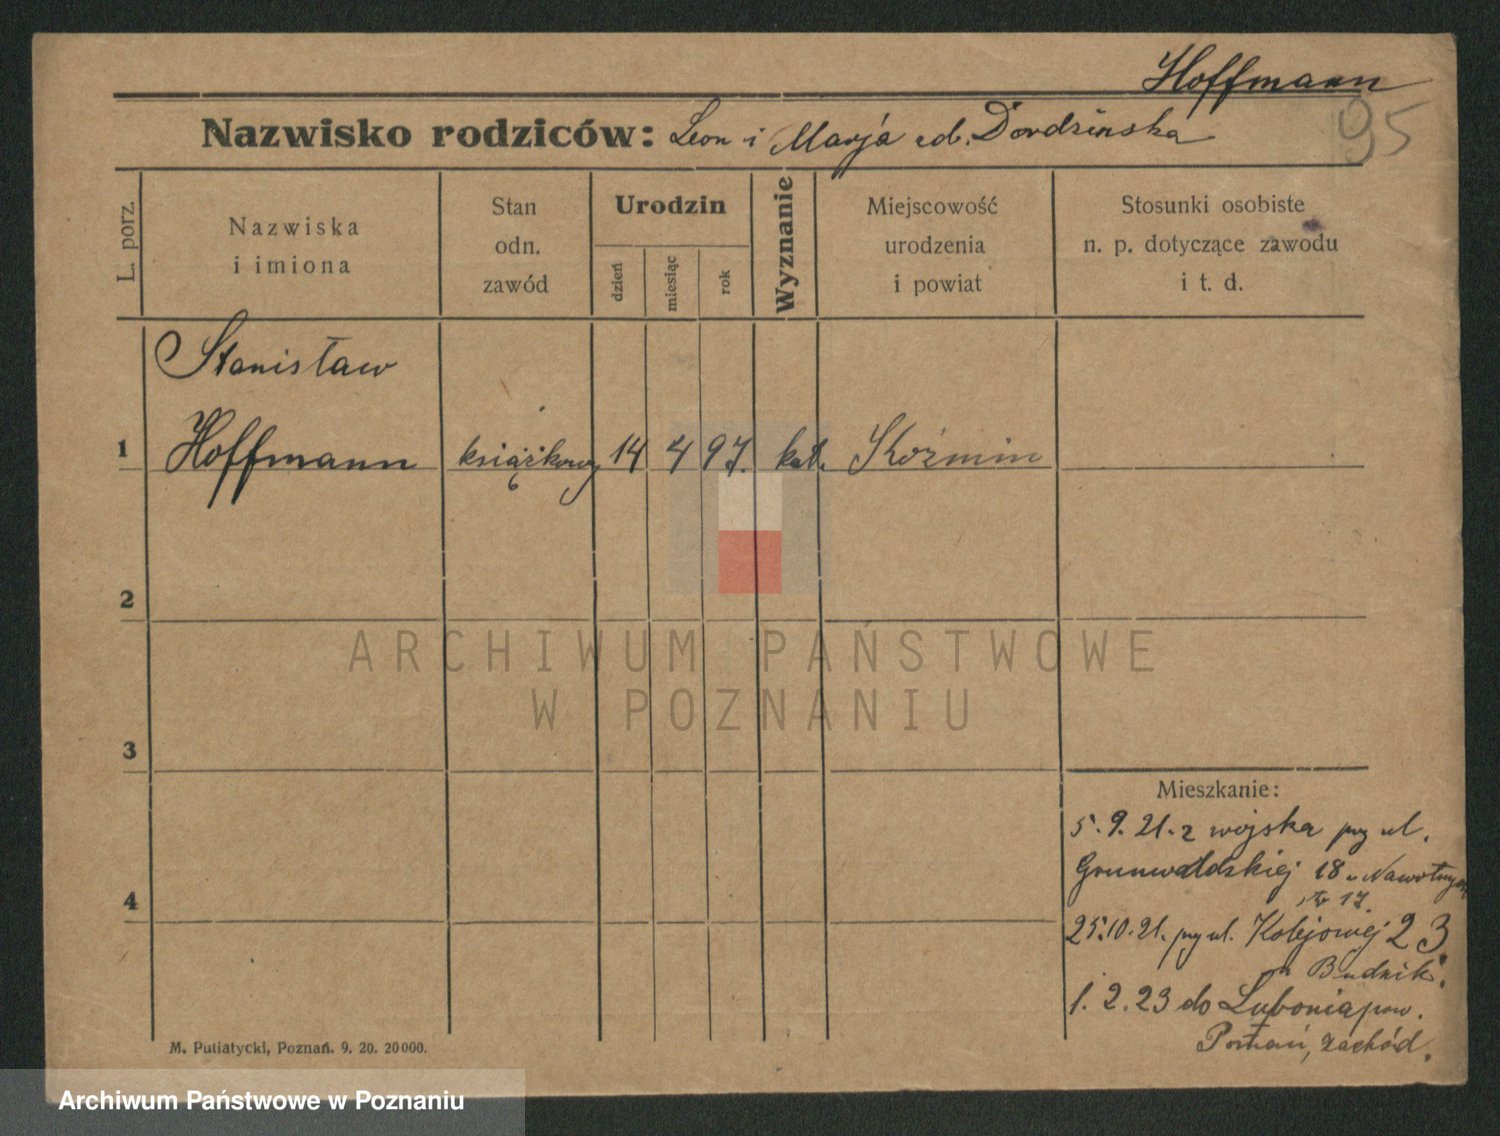 Hoffmann
95
Nazwisko rodziców: Leon i Marja
L. porz.
Nazwiska
i imiona
Stan
odn.
zawód
Urodzin
dzień
miesiąc
rok
Wyznanie
Miejscowość
urodzenia
i powiat
Stosunki osobiste
n. p. dotyczące zawodu
i t. d.
Stanisław
1 Hoffmann książkowy 14 4 97. kat. Koźmin
2
ARCHIWUM PAŃSTWOWE
W POZNANIU
3
Mieszkanie:
5.9.21. z wojska przy ul.
4
Grunwaldzkiej 18
17.
25.10.21. przy ul. Kolejowej 23
Budzik.
1.2.23 do Lubonia pow.
Poznań, zachód.
M. Putiatycki, Poznań. 9. 20. 20000.
Archiwum Państwowe w Poznaniu